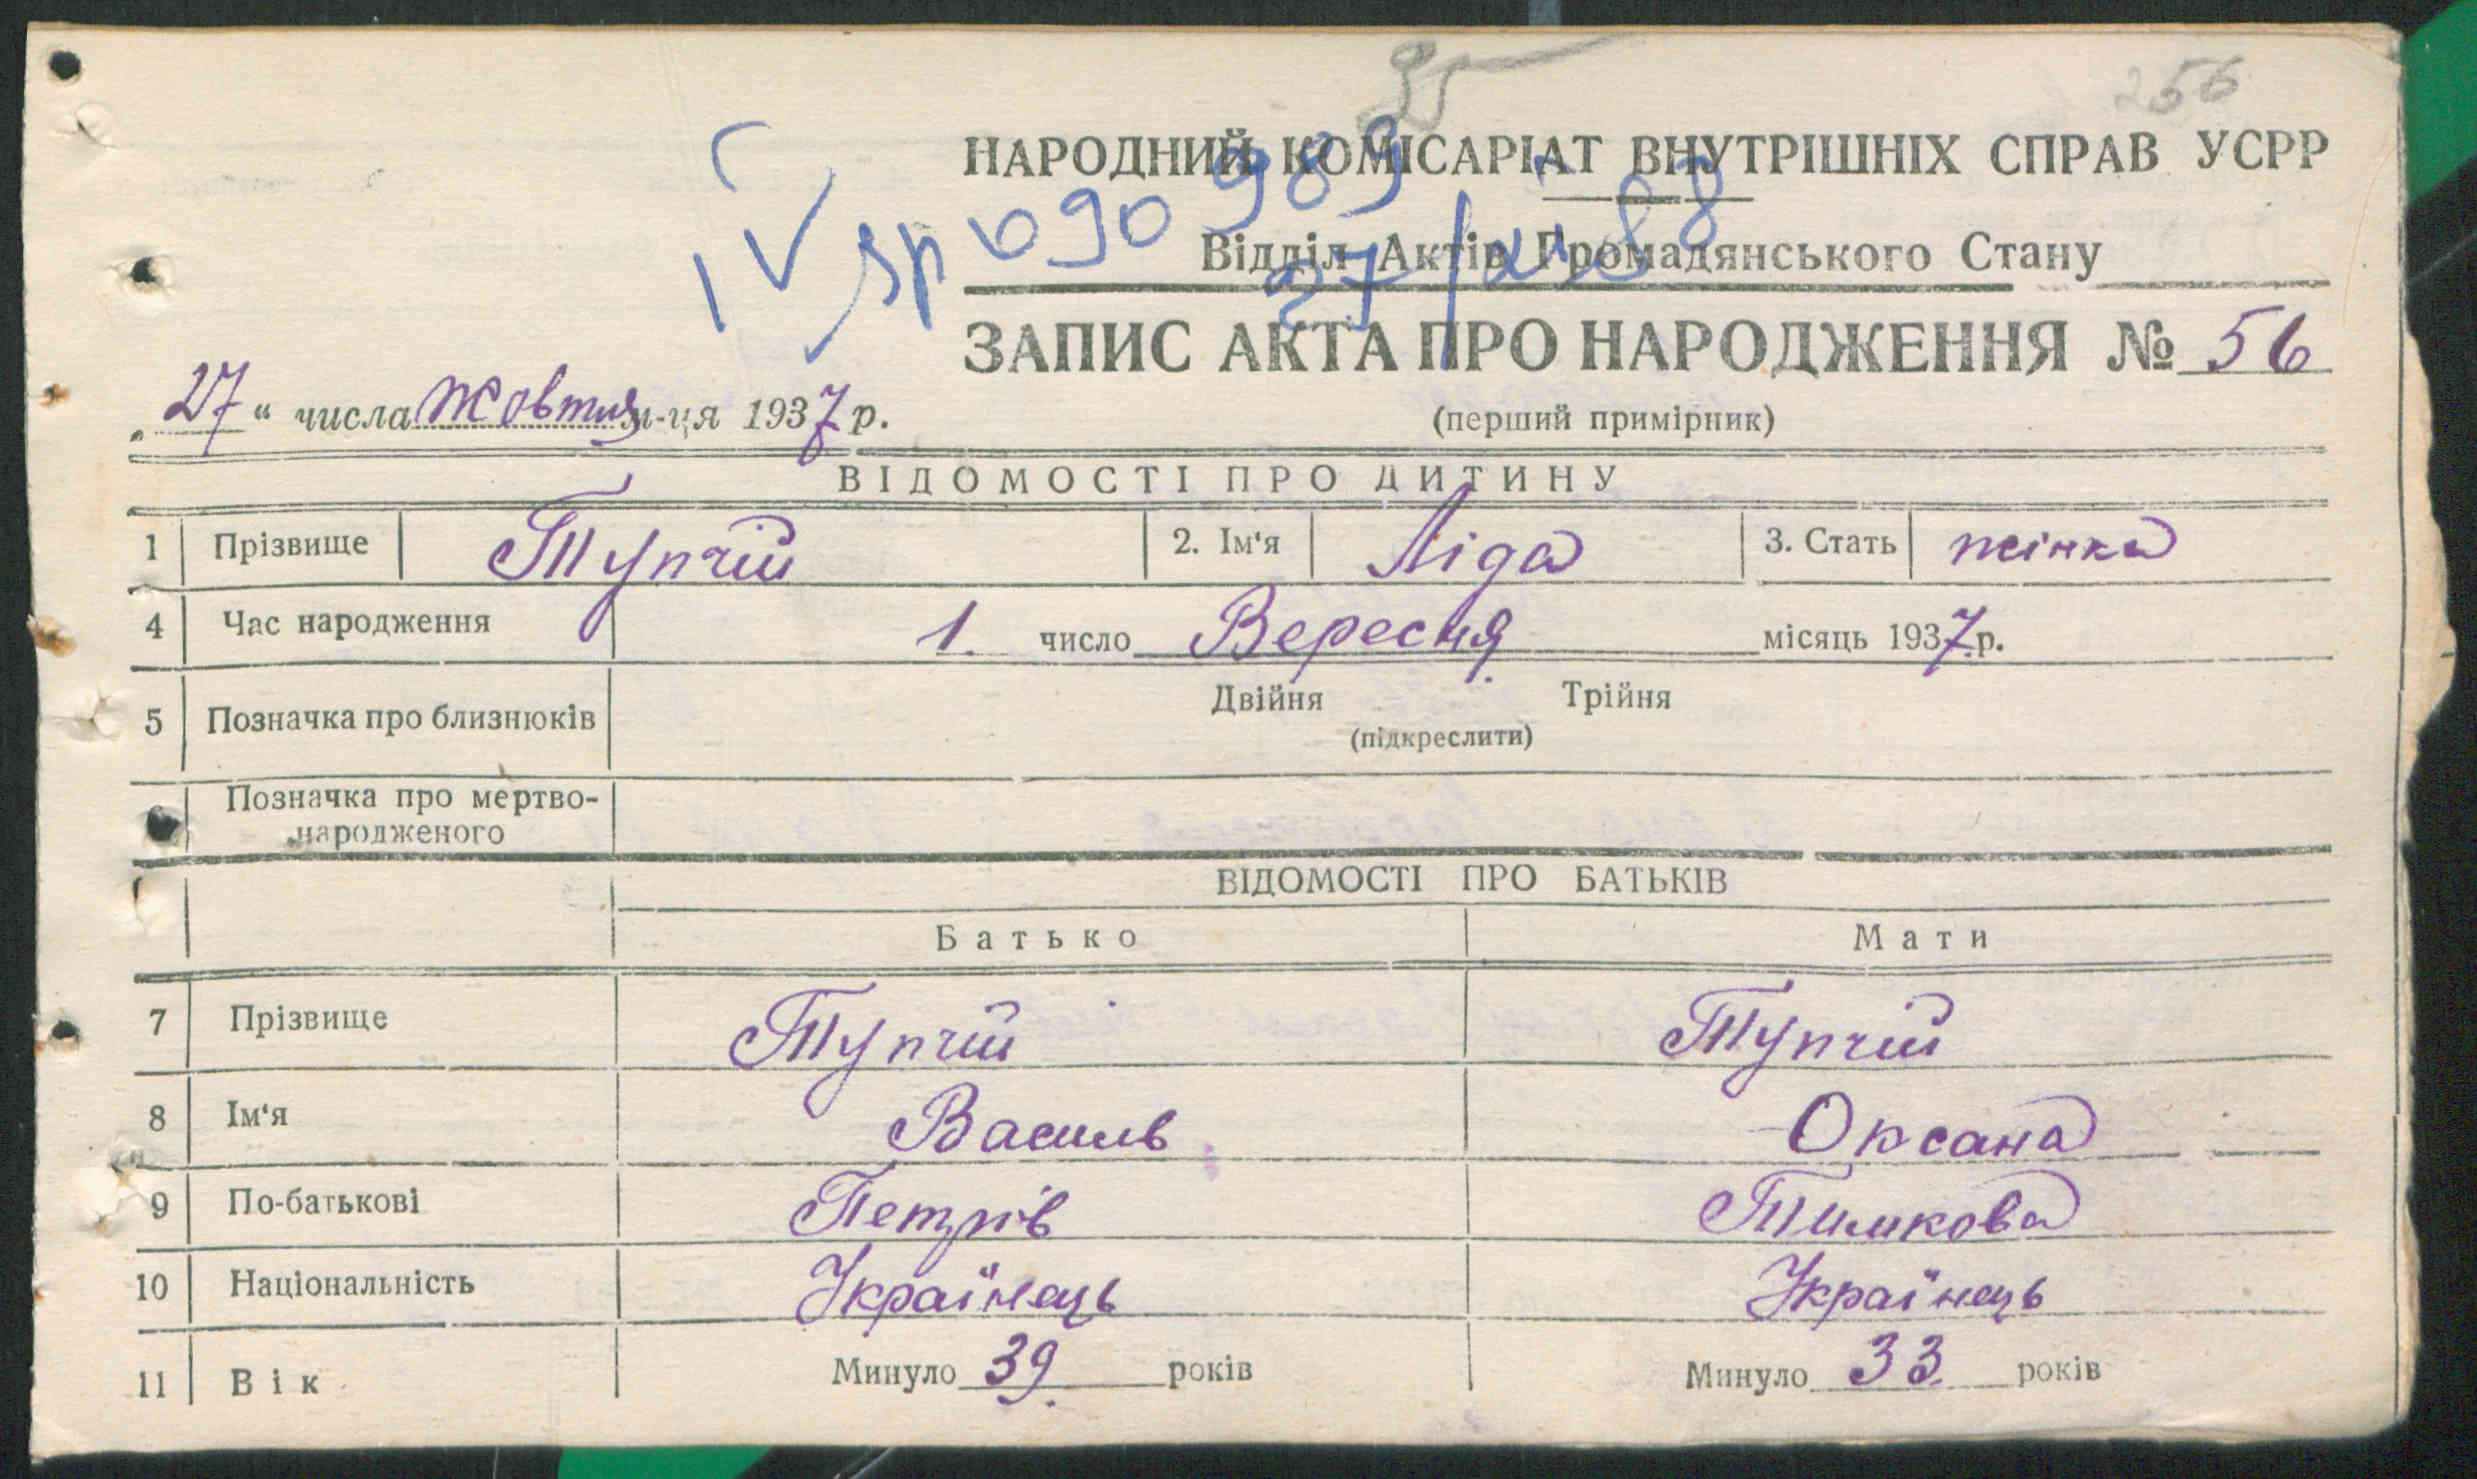 95
256
НАРОДНИЙ КОМІСАРІАТ ВНУТРІШНІХ СПРАВ УСРР
Відділ Актів Громадянського Стану
ЗАПИС АКТА ПРО НАРОДЖЕННЯ № 56
„27“ числа Жовтня м-ця 1937 р.
(перший примірник)
ВІДОМОСТІ ПРО ДИТИНУ
1 Прізвище Тупчій 2. Ім‘я Ліда 3. Стать жінка
4 Час народження 1. число Вересня місяць 1937 р.
5 Позначка про близнюків Двійня Трійня
(підкреслити)
6 Позначка про мертво-
народженого
ВІДОМОСТІ ПРО БАТЬКІВ
Батько Мати
7 Прізвище Тупчій Тупчій
8 Ім‘я Василь Оксана
9 По-батькові Петрів Тимкова
10 Національність Українець Українець
11 Вік Минуло 39. років Минуло 33. років